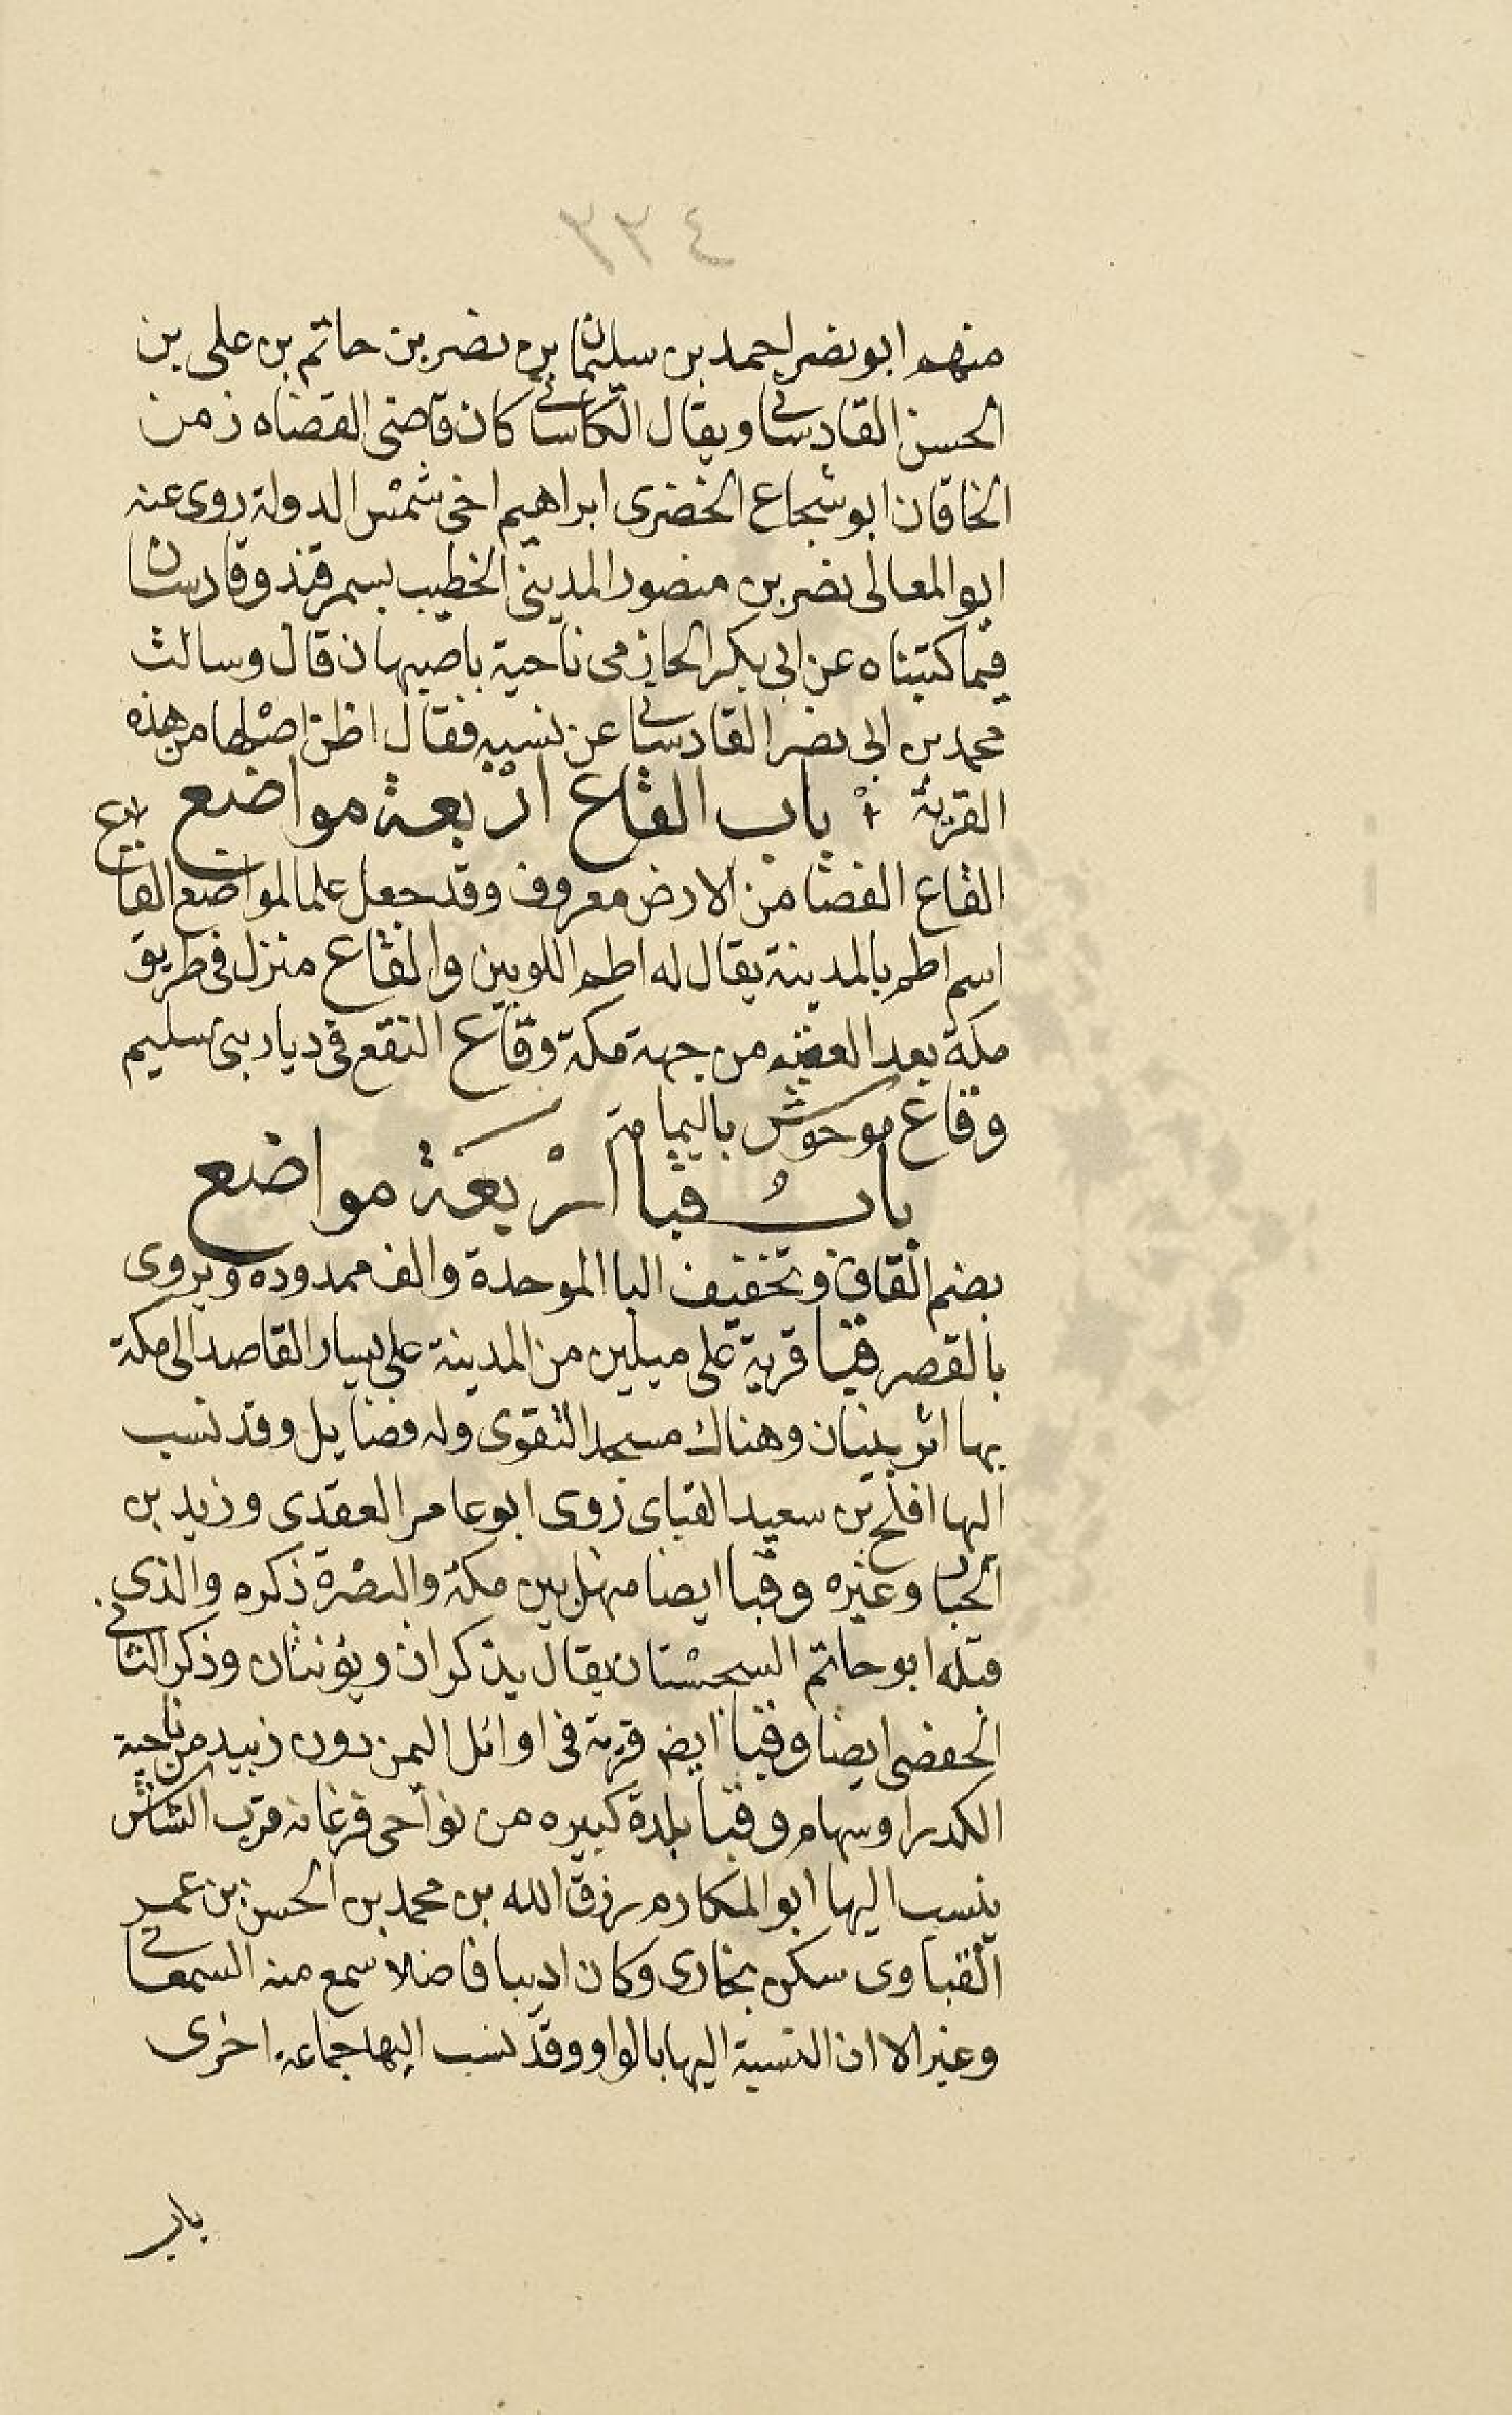 منهم ابو نصر احمد بن سليمان بن نصر بن حاتم بن على بن
الحسن القادسانى ويقال الكاسانى كان قاضى القضاه زمن
الخاقان ابو شجاع الخضرى ابراهيم اخى شمس الدولة روى عنه
ابو المعالى نصر بن منصور المدينى الخطيب بسمرقند وقادسان
فيما كتبناه عن ابى بكر الحازمى ناحية باصبهان قال وسالت
محمد بن ابى نصر القادسانى عن نسبه فقال اظن اصلها من هذه
القرية باب القاع اربعة مواضع
القاع الفضا من الارض معروف وقد جعل علما لمواضع القاع
اسم اطم بالمدينة يقال له اطم اللويين والقاع منزل فى طريق
مكة بعد العقبه من جهة مكة وقاع النقع فى ديار بنى سليم
وقاع موحوش باليمامة
باب قبا اربعة مواضع
بضم القاف وتخفيف البا الموحدة والف ممدوده ويروى
بالقصر قبا قرية على ميلين من المدينة على يسار القاصد الى مكة
بها اثر بنيان وهناك مسجد التقوى وله فضايل وقد نسب
اليها افلح بن سعيد القباى روى ابو عامر العقدى وزيد بن
الحباب وغيره وقبا ايضا منهل بين مكة والبصرة ذكره والذى
قبله ابو حاتم السجستان يقال يذكران ويؤنثان وذكر الثانى
الحفصى ايضا وقبا ايض قرية فى اوائل اليمن دون زبيد من ناحية
الكدرا وسهام وقبا بلدة كبيره من نواحى فرغانه قرب الشاش
ينسب اليها ابو المكارم رزق الله بن محمد بن الحسن بن عمر
القباوى سكن بخارى وكان اديبا فاضلا سمع منه السمعانى
وغير الا ان النسبة اليها بالواو وقد نسب اليها جماعة اخرى
باب